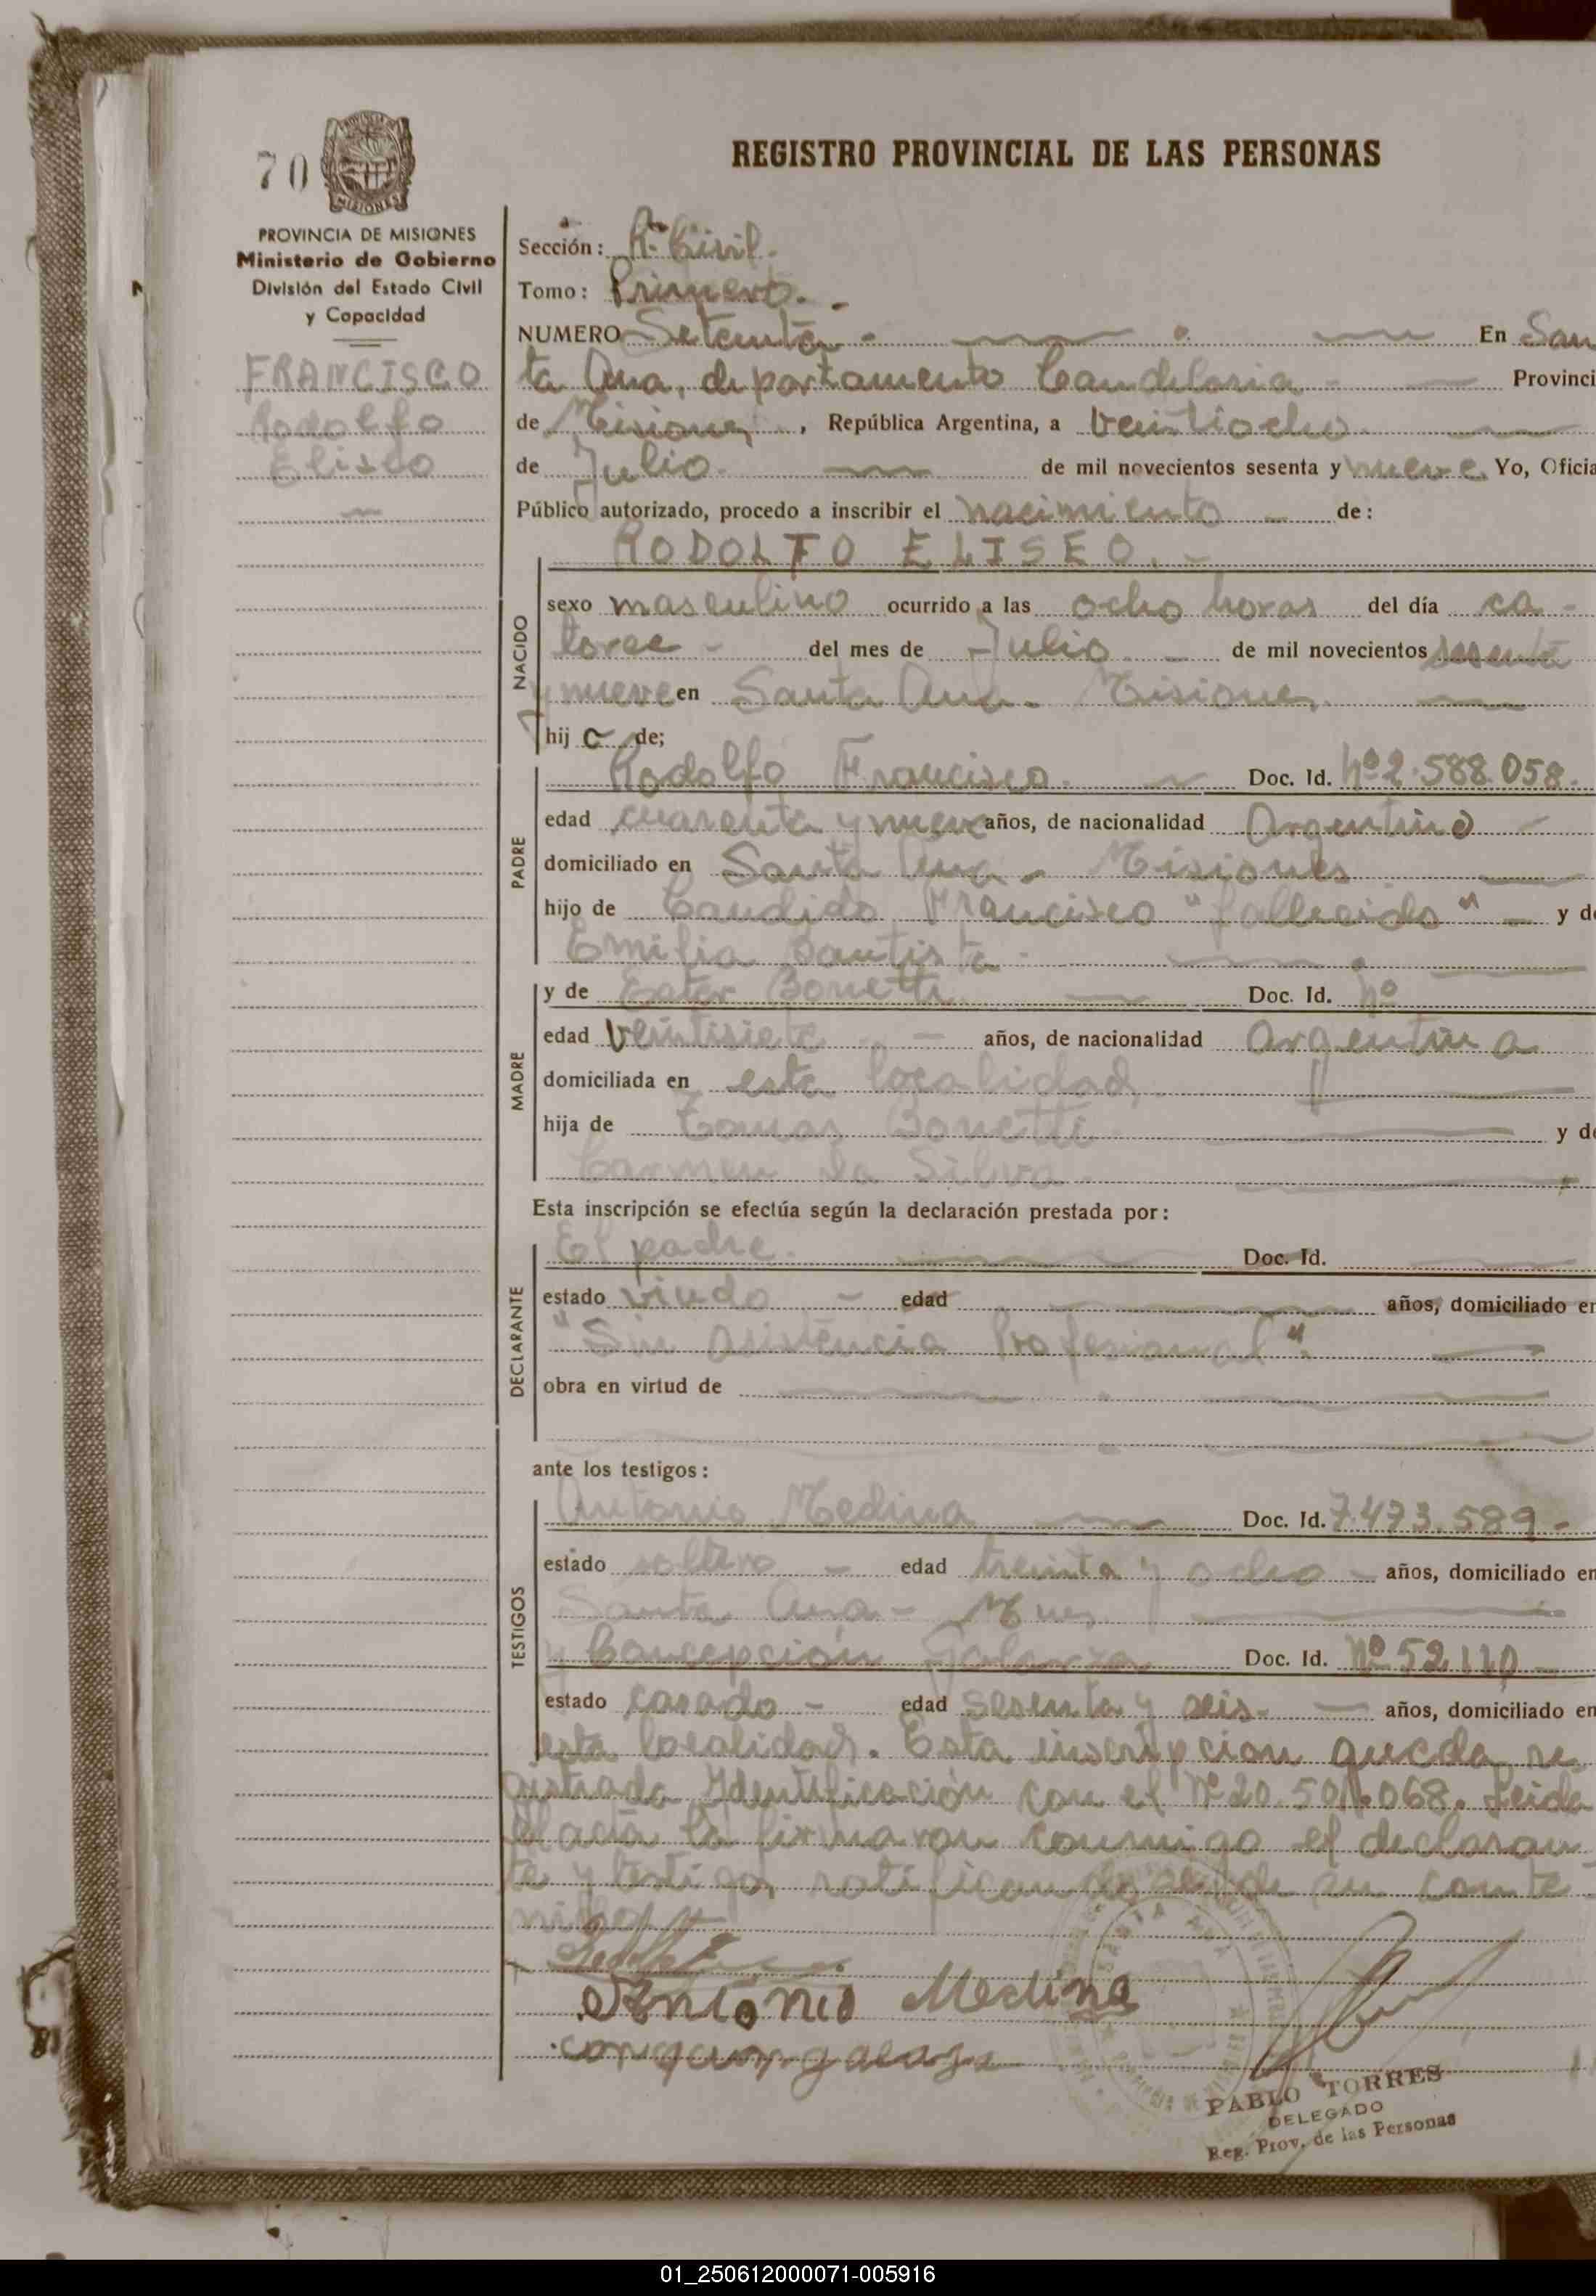 70
MISIONES
PROVINCIA DE MISIONES
Ministerio de Gobierno
División del Estado Civil
y Capacidad
FRANCISCO
Rodolfo
Eliseo
REGISTRO PROVINCIAL DE LAS PERSONAS
Sección: R. Civil.
Tomo: Primero.
NUMERO Setenta - En San
ta Ana, departamento Candelaria - Provinci
de Misiones, República Argentina, a veintiocho
de Julio. de mil novecientos sesenta y nueve Yo, Oficia
Público autorizado, procedo a inscribir el nacimiento - de:
RODOLFO ELISEO. -
NACIDO
sexo masculino ocurrido a las ocho horas del día ca -
torce - del mes de Julio. - de mil novecientos sesenta
y nueve en Santa Ana. Misiones.
hij o de;
PADRE
Rodolfo Francisco. Doc. Id. Nº 2.588.058.
edad cuarenta y nueve años, de nacionalidad Argentino
domiciliado en Santa Ana - Misiones
hijo de Candido Francisco "fallecido" - y de
Emilia Bautista -
MADRE
y de Ester Bonetti Doc. Id. Nº
edad veintisiete - años, de nacionalidad argentina
domiciliada en esta localidad,
hija de Tomas Bonetti y de
Carmen da Silva
Esta inscripción se efectúa según la declaración prestada por:
DECLARANTE
El padre. Doc. Id.
estado viudo - edad años, domiciliado en
"Sin asistencia Profesional".
obra en virtud de
ante los testigos:
TESTIGOS
Antonio Medina Doc. Id. 7.473.589 -
estado soltero - edad treinta y ocho - años, domiciliado en
Santa Ana - Mnes.
y Concepción Galarza Doc. Id. Nº 52110 -
estado casado - edad sesenta y seis. - años, domiciliado en
esta localidad. Esta inscripcion queda re
gistrada Identificación con el Nº 20.501.068. Leida
el acta la firmaron conmigo el declaran
te y testigos ratificandose de su conte
nido
Antonio Medina
SANTA ANA
PABLO TORRES
DELEGADO
Reg. Prov. de las Personas
01_250612000071-005916